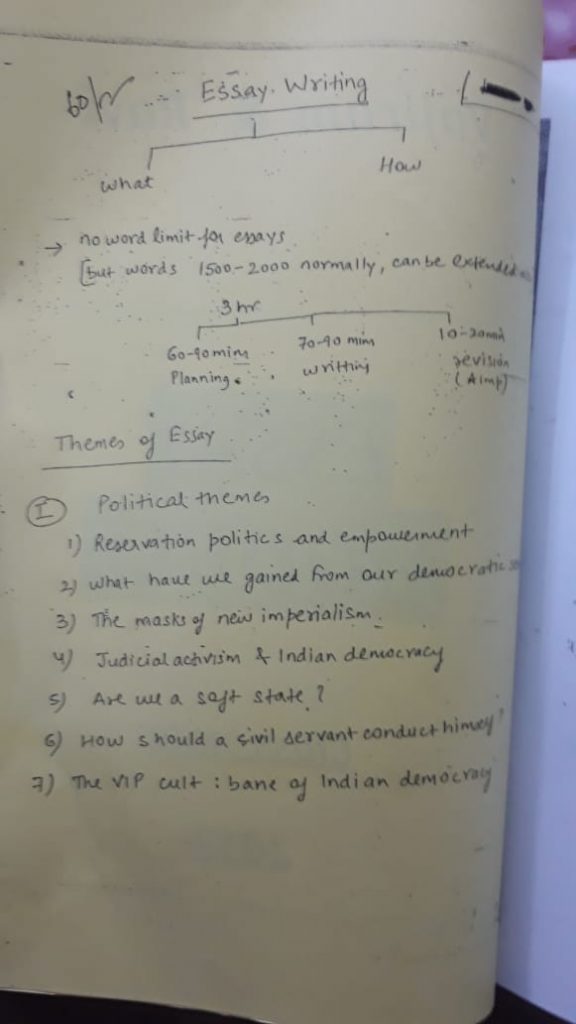 Essay Writing
What
How
→ no word limit for essays
[but words 1500-2000 normally, can be extended
3 hr
60-90 mins
Planning.
70-90 mins
writting
10-20 min
revision
(A imp)
Themes of Essay
I Political themes
1) Reservation politics and empowerment
2) What have we gained from our democratic
3) The masks of new imperialism.
4) Judicial activism & Indian democracy
5) Are we a soft state?
6) How should a civil servant conduct himself?
7) The VIP cult : bane of Indian democracy